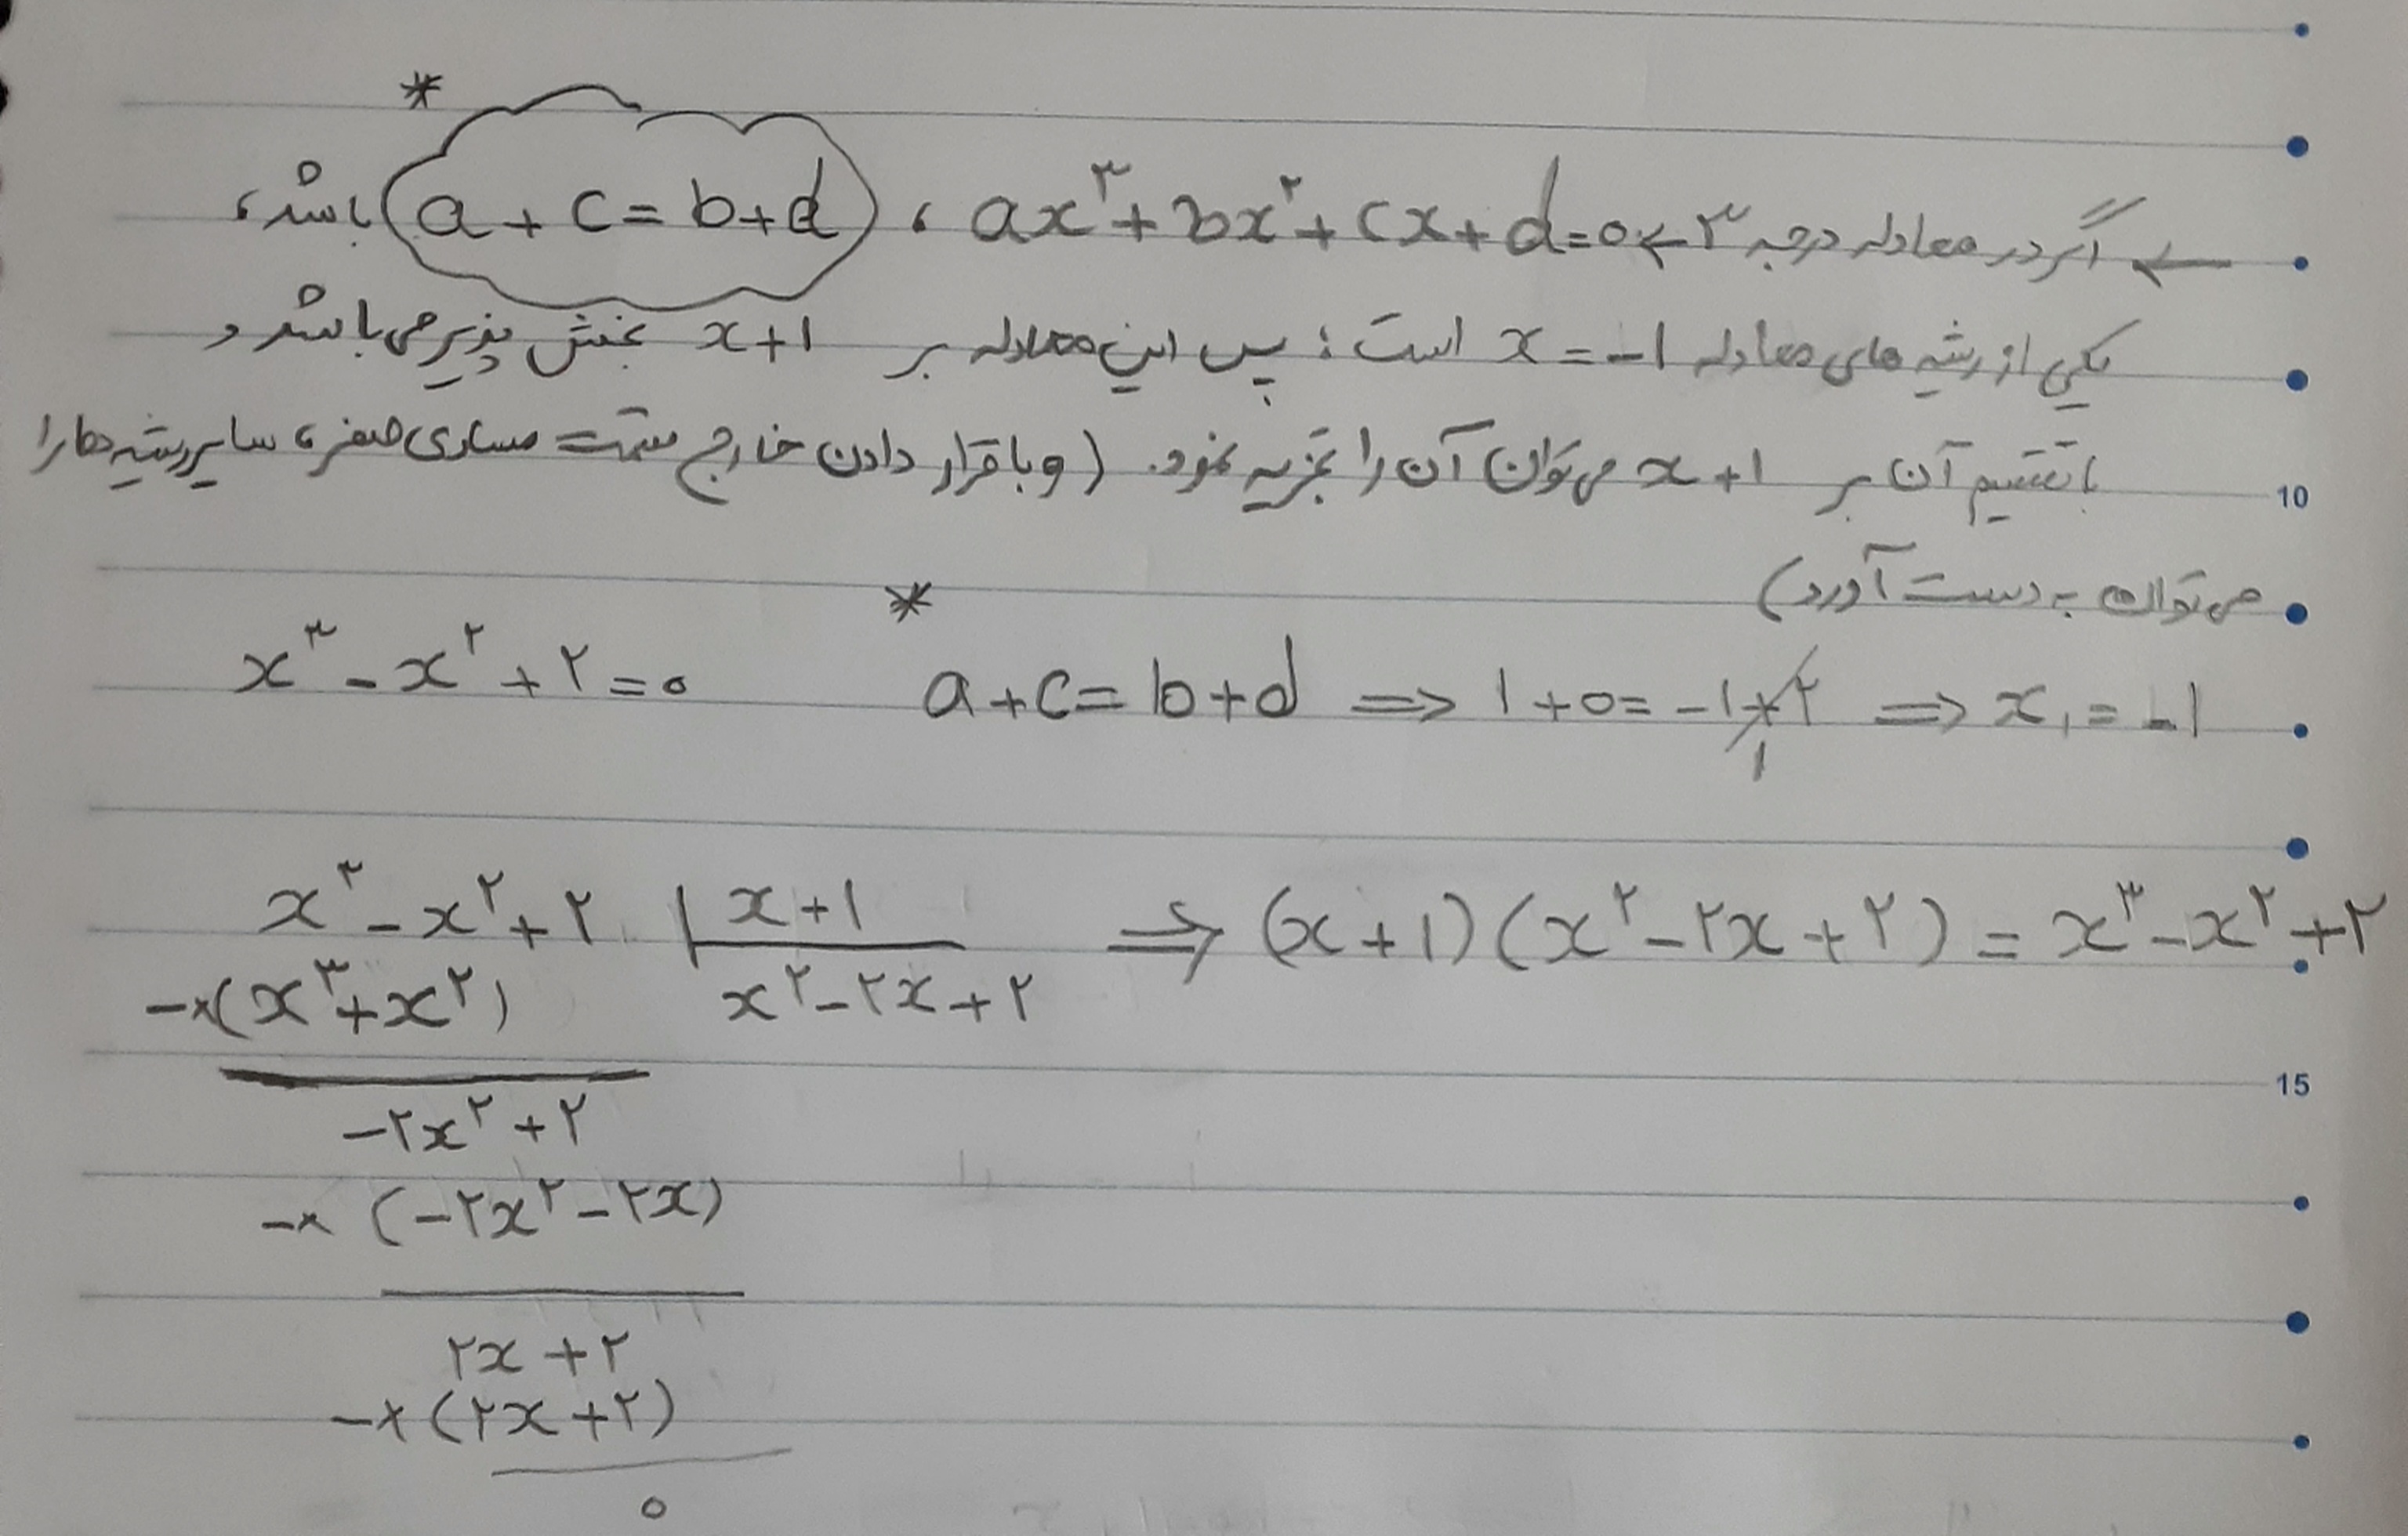 ← اگر در معادله درجه ۳ ← ax³+bx²+cx+d=۰ ، a+c=b+d باشد، *
یکی از ریشه های معادله x=-۱ است ؛ پس این معادله بر x+۱ بخش پذیر می باشد و
با تقسیم آن بر x+۱ می توان آن را تجزیه نمود. (و با قرار دادن خارج قسمت مساوی صفر، سایر ریشه ها را
می توان به دست آورد)
x³-x²+۲=۰ * a+c=b+d ⇒ ۱+۰=-۱+۲ ۱ ⇒ x₁=-۱
x³-x²+۲ | x+۱ ⇒ (x+۱)(x²-۲x+۲)=x³-x²+۲
-×(x³+x²) x²-۲x+۲
-۲x²+۲
-×(-۲x²-۲x)
۲x+۲
-×(۲x+۲)
۰
10
15